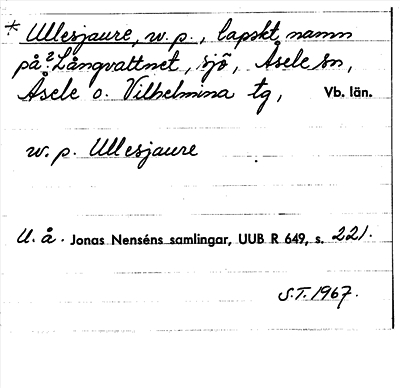 * Ullesjaure, w. p., lapskt namn
på ²Långvattnet, sjö, Åsele sn,
Åsele o. Vilhelmina tg, Vb. län.
w. p. Ullesjaure
U. å. Jonas Nenséns samlingar, UUB R 649, s. 221.
S.T. 1967.